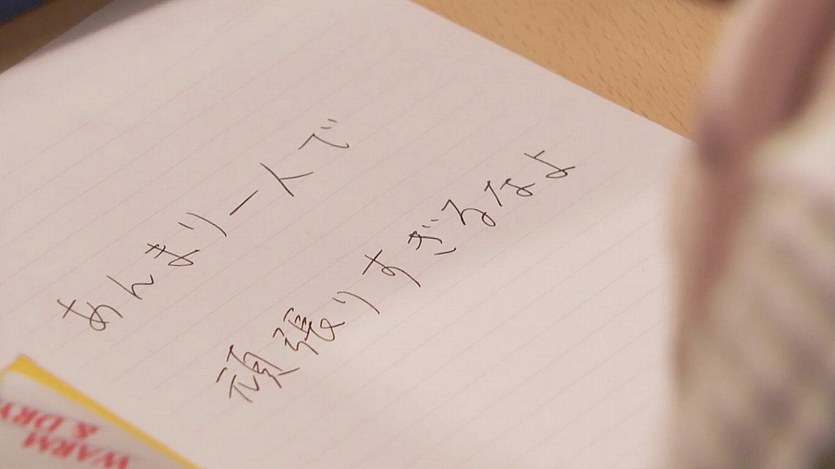 あんまり一人で
頑張りすぎるなよ
WARM
& DRY